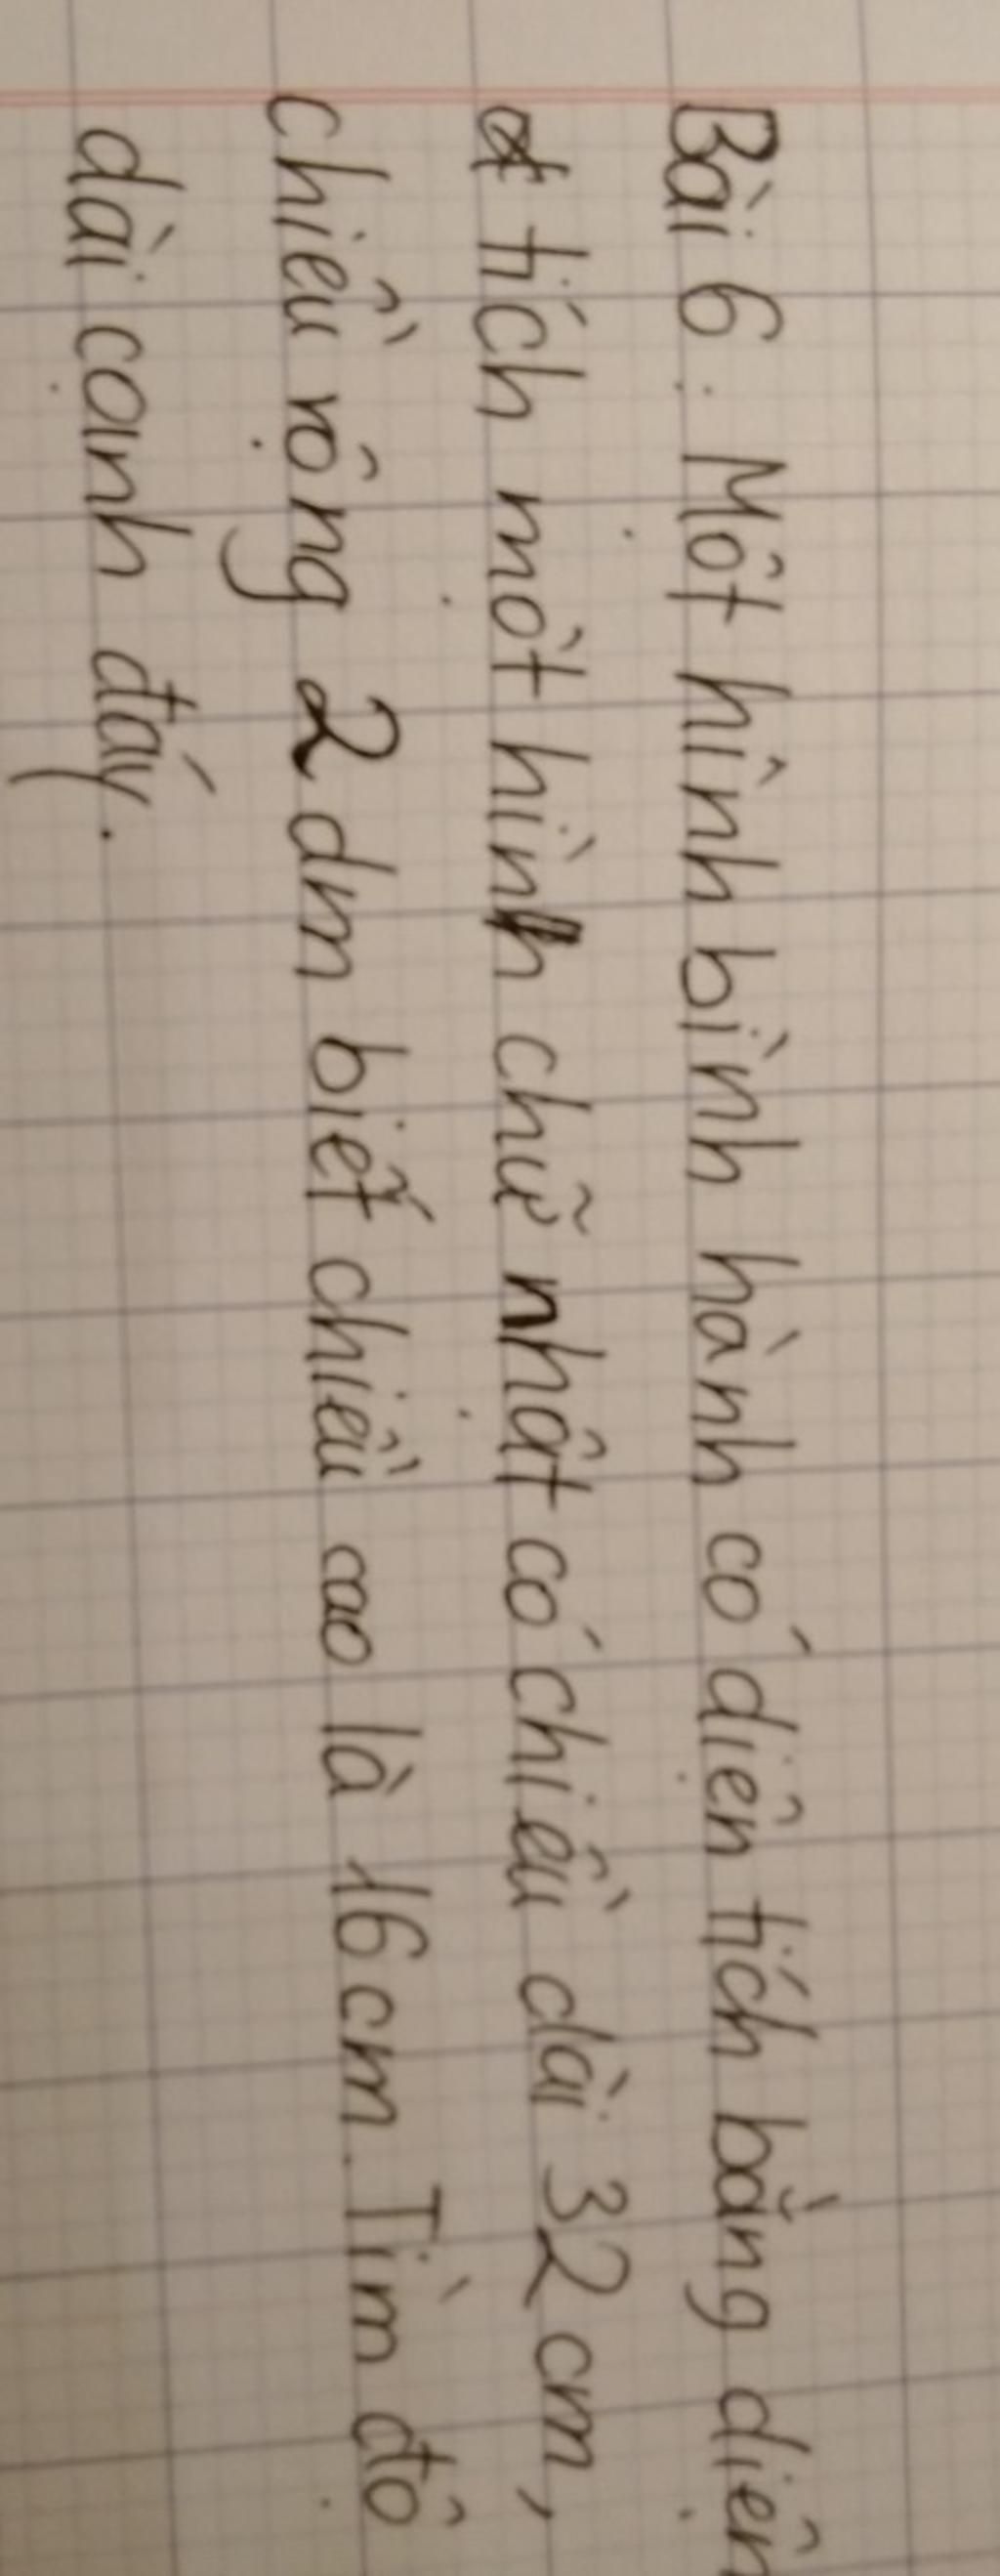 Bài 6. Một hình bình hành có diện tích bằng diện
tích một hình chữ nhật có chiều dài 32 cm,
chiều rộng 2 dm biết chiều cao là 16 cm. Tìm độ
dài cạnh đáy.